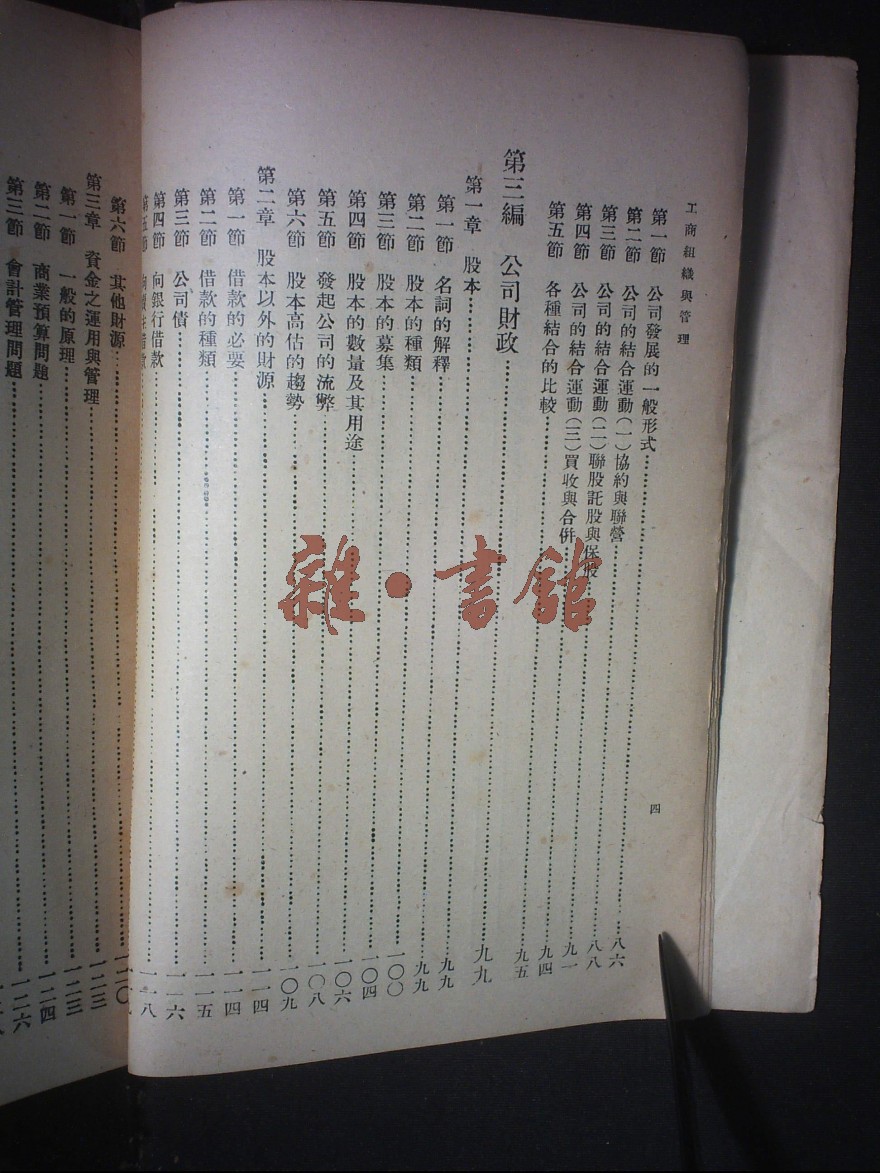 工商組織與管理
四
第一節 公司發展的一般形式……八六
第二節 公司的結合運動(一)協約與聯營……八八
第三節 公司的結合運動(二)聯股託股與保股……九一
第四節 公司的結合運動(三)買收與合併……九四
第五節 各種結合的比較……九五
第三編 公司財政……九九
第一章 股本……九九
第一節 名詞的解釋……九九
第二節 股本的種類……一〇〇
第三節 股本的募集……一〇四
第四節 股本的數量及其用途……一〇六
第五節 發起公司的流弊……一〇八
第六節 股本高估的趨勢……一〇九
第二章 股本以外的財源……一一四
第一節 借款的必要……一一四
第二節 借款的種類……一一五
第三節 公司債……一一六
第四節 向銀行借款……一一八
第五節
第六節 其他財源……一二〇
第三章 資金之運用與管理……一二三
第一節 一般的原理……一二三
第二節 商業預算問題……一二四
第三節 會計管理問題……一二六
雜·書館